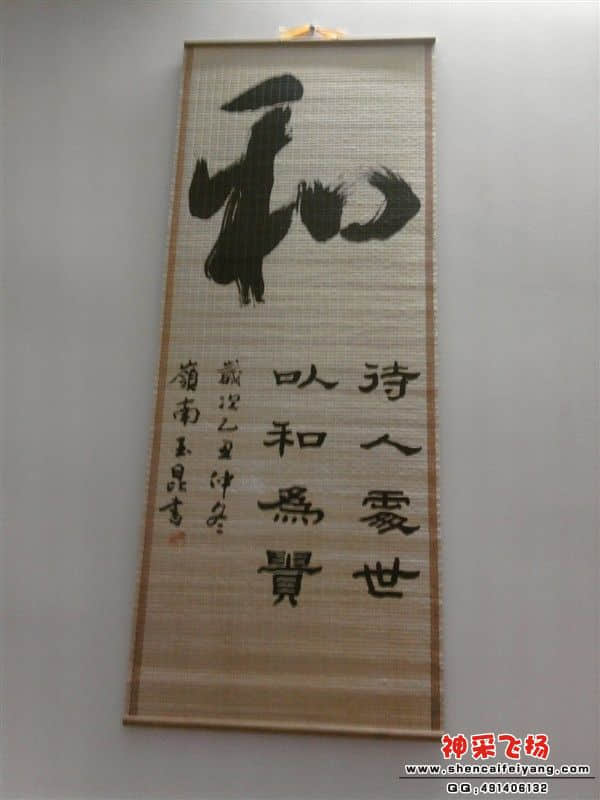 和
待人處世
以和為貴
歲次乙丑仲冬
嶺南玉昆書
神采飞扬
www.shencaifeiyang.com
QQ:491406132